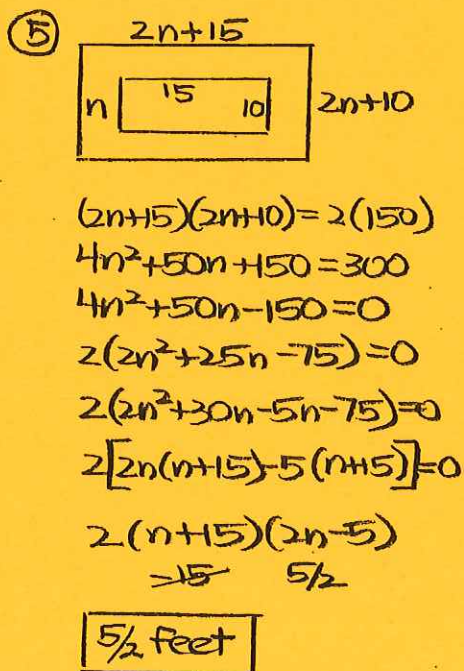 5
2n+15
n 15 10 2n+10
(2n+15)(2n+10)=2(150)
4n²+50n+150=300
4n²+50n-150=0
2(2n²+25n-75)=0
2(2n²+30n-5n-75)=0
2[2n(n+15)-5(n+15)]=0
2(n+15)(2n-5)
-15 5/2
5/2 feet